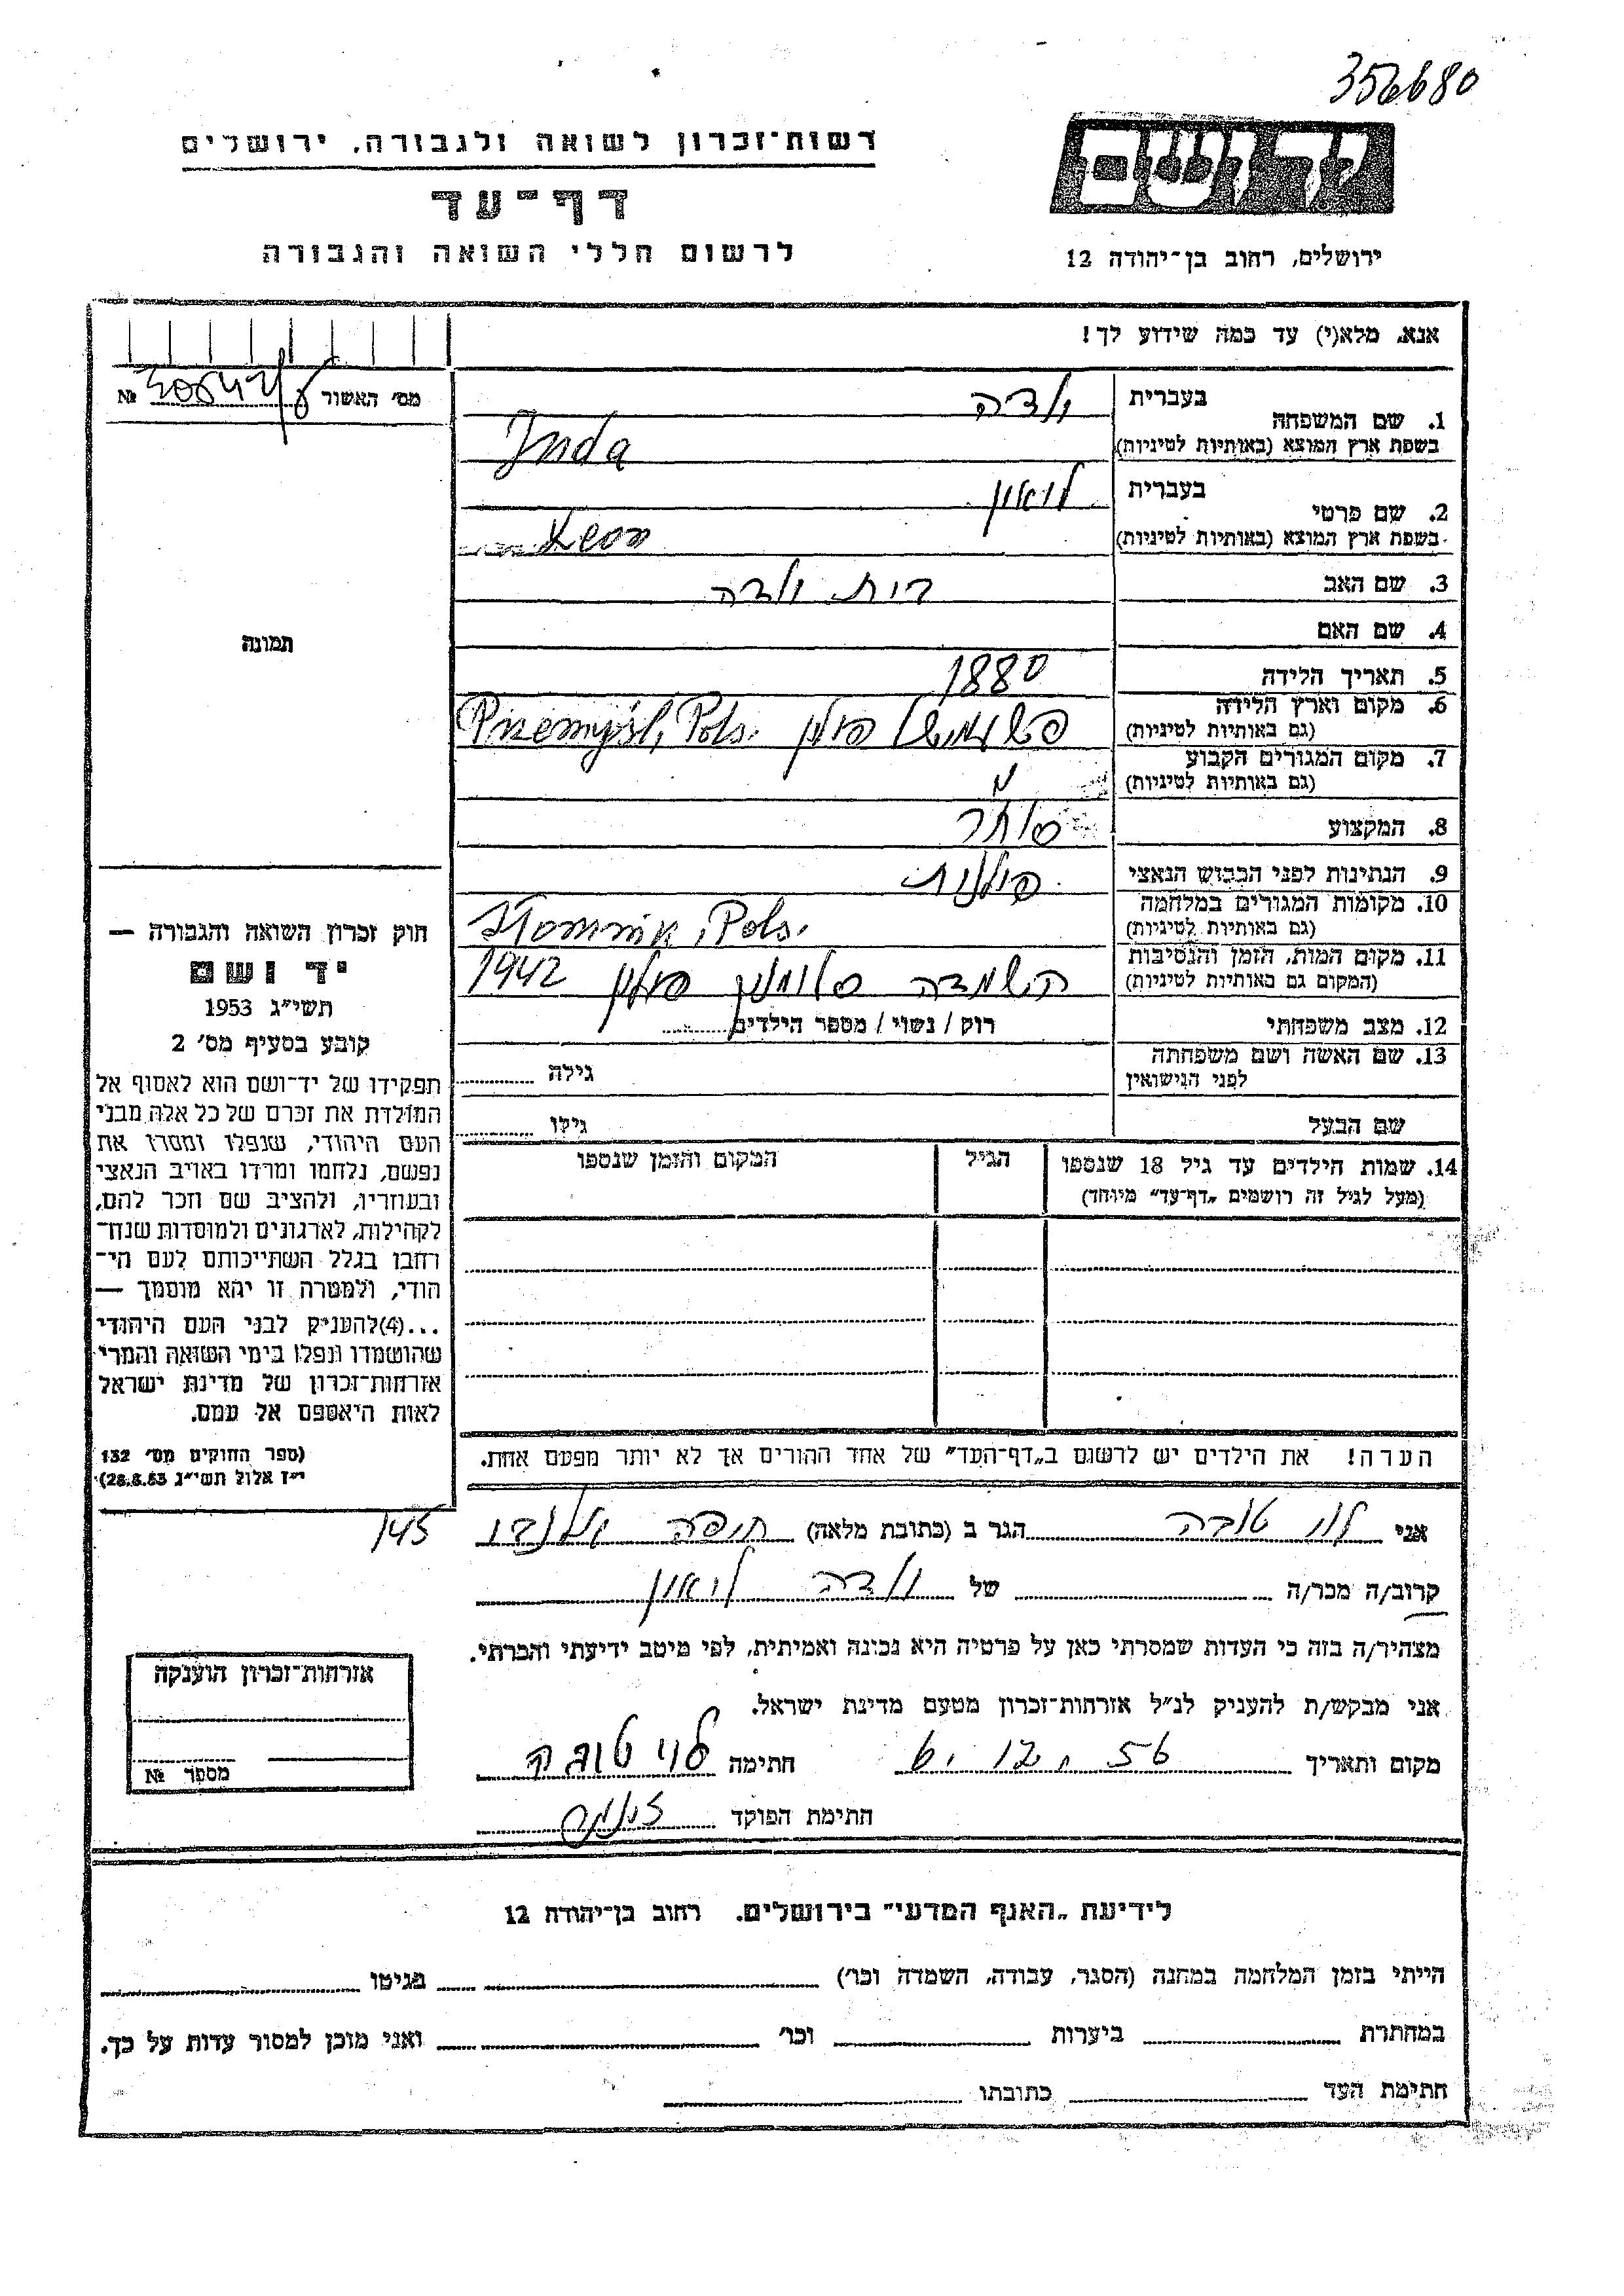 356680
רשות־זכרון לשואה ולגבורה, ירושלים
דף־עד
לרשום חללי השואה והגבורה
יד ושם
ירושלים, רחוב בן־יהודה 12
אנא, מלא(י) עד כמה שידוע לך!
מס׳ האשור №
1. שם המשפחה
בעברית
בשפת ארץ המוצא (באותיות לטיניות) Inda
2. שם פרטי
בעברית ליאון
בשפת ארץ המוצא (באותיות לטיניות) Leon
3. שם האב
4. שם האם
5. תאריך הלידה 1880
6. מקום וארץ הלידה
(גם באותיות לטיניות) פשמישל פולין Przemyśl, Pols.
7. מקום המגורים הקבוע
(גם באותיות לטיניות) "
8. המקצוע סוחר
9. הנתינות לפני הכבוש הנאצי פולנית
10. מקומות המגורים במלחמה
(גם באותיות לטיניות) Słomnik, Pols.
11. מקום המות, הזמן והנסיבות
(המקום גם באותיות לטיניות) השמדה סלומניק פולין 1942
12. מצב משפחתי רוק / נשוי / מספר הילדים
13. שם האשה ושם משפחתה
לפני הנישואין גילה
שם הבעל גילו
14. שמות הילדים עד גיל 18 שנספו
(מעל לגיל זה רושמים „דף־עד” מיוחד)
הגיל
המקום והזמן שנספו
הערה! את הילדים יש לרשום ב„דף־העד” של אחד ההורים אך לא יותר מפעם אחת.
תמונה
חוק זכרון השואה והגבורה —
יד ושם
תשי״ג 1953
קובע בסעיף מס׳ 2
תפקידו של יד־ושם הוא לאסוף אל
המולדת את זכרם של כל אלה מבני
העם היהודי, שנפלו ומסרו את
נפשם, נלחמו ומרדו באויב הנאצי
ובעוזריו, ולהציב שם וזכר להם,
לקהילות, לארגונים ולמוסדות שנח־
רבו בגלל השתייכותם לעם הי־
הודי, ולמטרה זו יהא מוסמך —
...(4)להעניק לבני העם היהודי
שהושמדו ונפלו בימי השואה והמרי
אזרחות־זכרון של מדינת ישראל
לאות היאספם אל עמם.
(ספר החוקים מס׳ 132
י״ז אלול תשי״ג 28.8.53)
אני לוי טובה הגר ב (כתובת מלאה) חיפה 145
קרוב/ה מכר/ה של ליאון
מצהיר/ה בזה כי העדות שמסרתי כאן על פרטיה היא נכונה ואמיתית, לפי מיטב ידיעתי והכרתי.
אני מבקש/ת להעניק לנ״ל אזרחות־זכרון מטעם מדינת ישראל.
מקום ותאריך חתימה לוי טובה
חתימת הפוקד
אזרחות־זכרון הוענקה
מספר №
לידיעת „האגף המדעי” בירושלים. רחוב בן־יהודה 12
הייתי בזמן המלחמה במחנה (הסגר, עבודה, השמדה וכו׳) בגיטו
במחתרת ביערות וכו׳ ואני מוכן למסור עדות על כך.
חתימת העד כתובתו